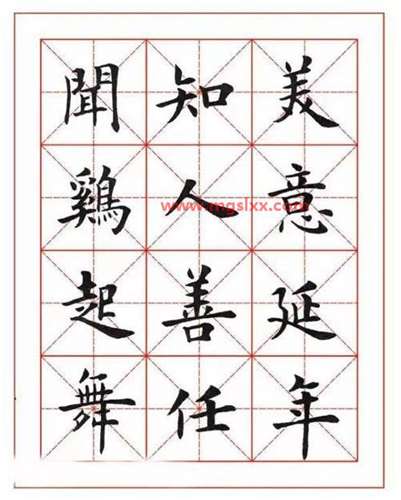 美意延年
知人善任
聞鷄起舞
www.mgslxx.com